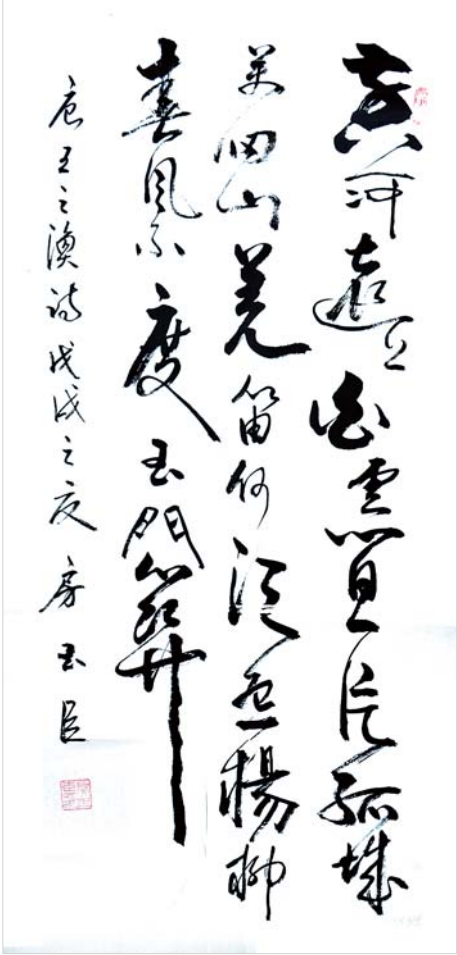 黃河遠上白雲間一片孤城
萬仞山羌笛何須怨楊柳
春風不度玉門關
唐王之渙詩戊戌之夏房玉臣